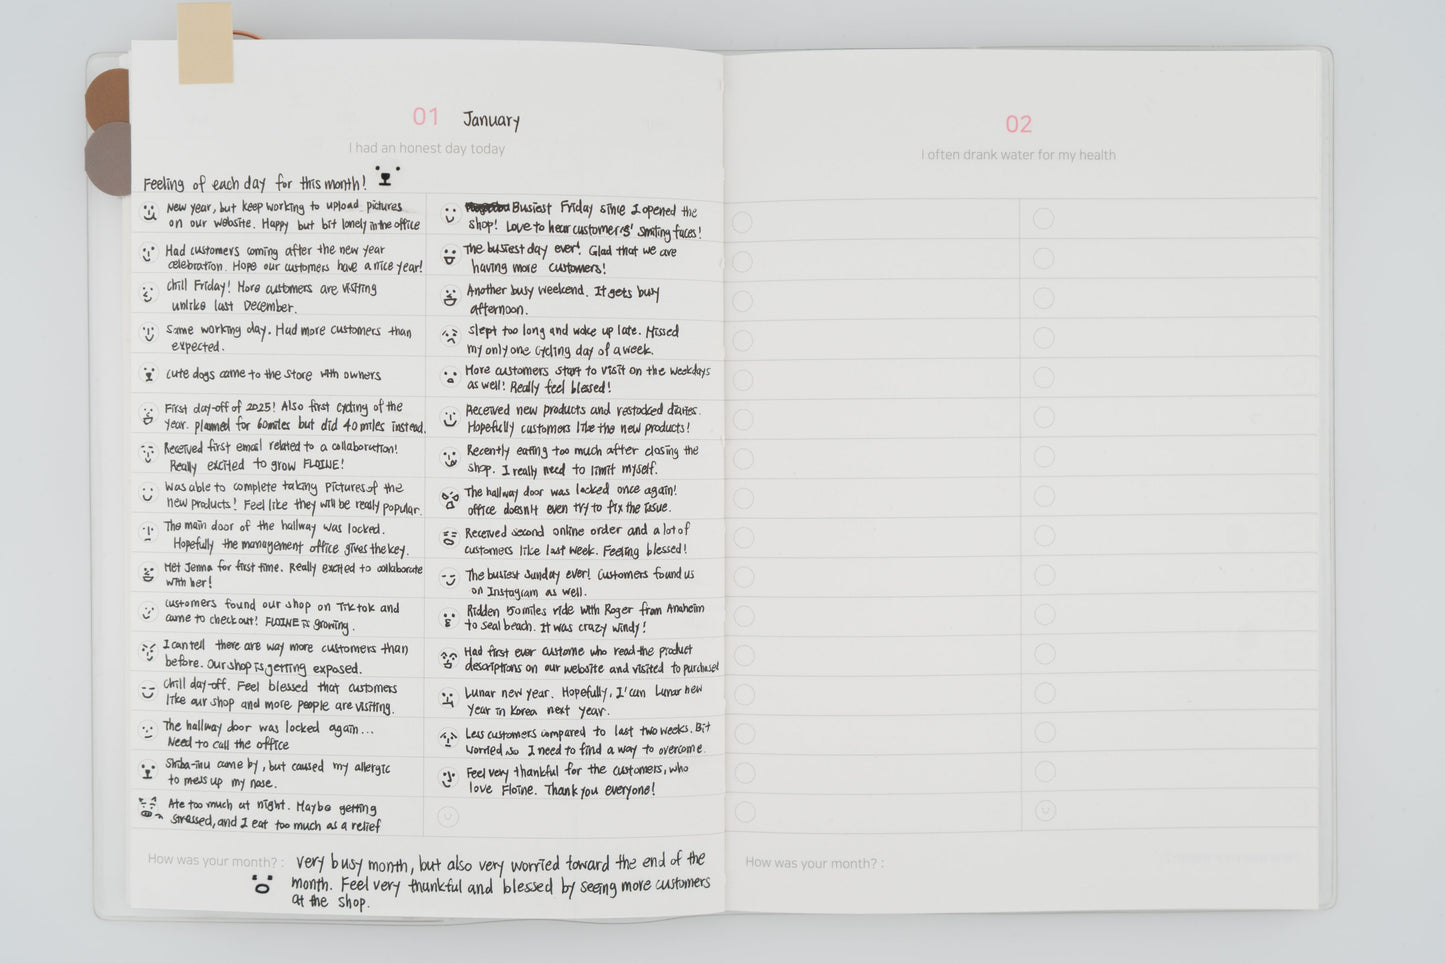 01 January
I had an honest day today
Feeling of each day for this month!
New year, but keep working to upload pictures
on our website. Happy but bit lonely in the office
Had customers coming after the new year
celebration. Hope our customers have a nice year!
Chill Friday! More customers are visiting
unlike last December.
Same working day. Had more customers than
expected.
Cute dogs came to the store with owners
First day-off of 2025! Also first cycling of the
year. planned for 60miles but did 40 miles instead.
Received first email related to a collaboration!
Really excited to grow FLOINE!
Was able to complete taking pictures of the
new products! Feel like they will be really popular.
The main door of the hallway was locked.
Hopefully the management office gives the key.
Met Jenna for first time. Really excited to collaborate
with her!
customers found our shop on TikTok and
came to check out! FLOINE is growing.
I can tell there are way more customers than
before. Our shop is getting exposed.
Chill day-off. Feel blessed that customers
like our shop and more people are visiting.
The hallway door was locked again...
Need to call the office
Shiba-inu came by, but caused my allergic
to mess up my nose.
Ate too much at night. Maybe getting
stressed, and I eat too much as a relief
Busiest Friday since I opened the
shop! Love to hear customers' smiling faces!
The busiest day ever! Glad that we are
having more customers!
Another busy weekend. It gets busy
afternoon.
Slept too long and woke up late. Missed
my only one cycling day of a week.
More customers start to visit on the weekdays
as well! Really feel blessed!
Received new products and restocked diaries.
Hopefully customers like the new products!
Recently eating too much after closing the
shop. I really need to limit myself.
The hallway door was locked once again!
office doesn't even try to fix the issue.
Received second online order and a lot of
customers like last week. Feeling blessed!
The busiest Sunday ever! Customers found us
on Instagram as well.
Ridden 50miles ride with Roger from Anaheim
to seal beach. It was crazy windy!
Had first ever custome who read the product
descriptions on our website and visited to purchased
Lunar new year. Hopefully, I can Lunar new
year in Korea next year.
Less customers compared to last two weeks. Bit
worried so I need to find a way to overcome.
Feel very thankful for the customers, who
love Floine. Thank you everyone!
How was your month? : very busy month, but also very worried toward the end of the
month. Feel very thankful and blessed by seeing more customers
at the shop.
02
I often drank water for my health
How was your month? :